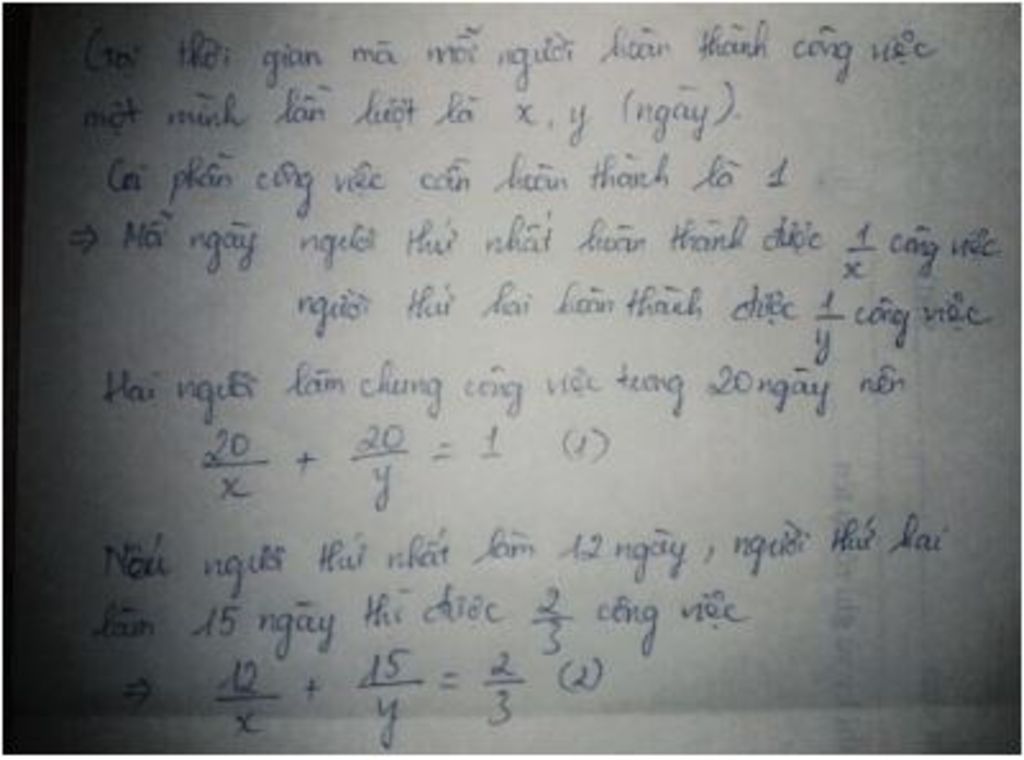 Gọi thời gian mà mỗi người hoàn thành công việc
một mình lần lượt là x, y (ngày).
Coi phần công việc cần hoàn thành là 1
⇒ Mỗi ngày người thứ nhất hoàn thành được 1/x công việc
người thứ hai hoàn thành được 1/y công việc
Hai người làm chung công việc trong 20 ngày nên
20/x + 20/y = 1 (1)
Nếu người thứ nhất làm 12 ngày, người thứ hai
làm 15 ngày thì được 2/3 công việc
⇒ 12/x + 15/y = 2/3 (2)